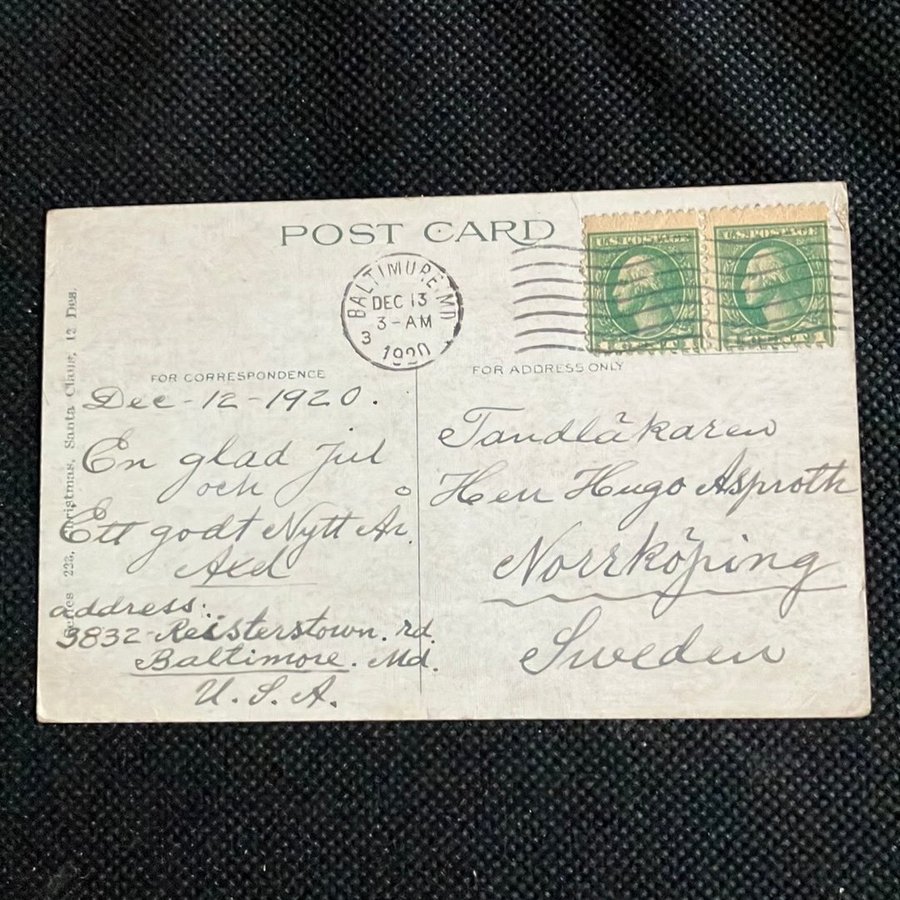 POST CARD
BALTIMORE MD
DEC 13
3-AM
1920
3
U.S. POSTAGE
U.S. POSTAGE
FOR CORRESPONDENCE
FOR ADDRESS ONLY
Dec-12-1920.
En glad Jul
och
Ett godt Nytt År.
Axel
address:
3832-Reisterstown. rd.
Baltimore. Md.
U. S. A.
Tandläkaren
Herr Hugo Asproth
Norrköping
Sweden
Series 223, Christmas, Santa Claus, 12 Des.